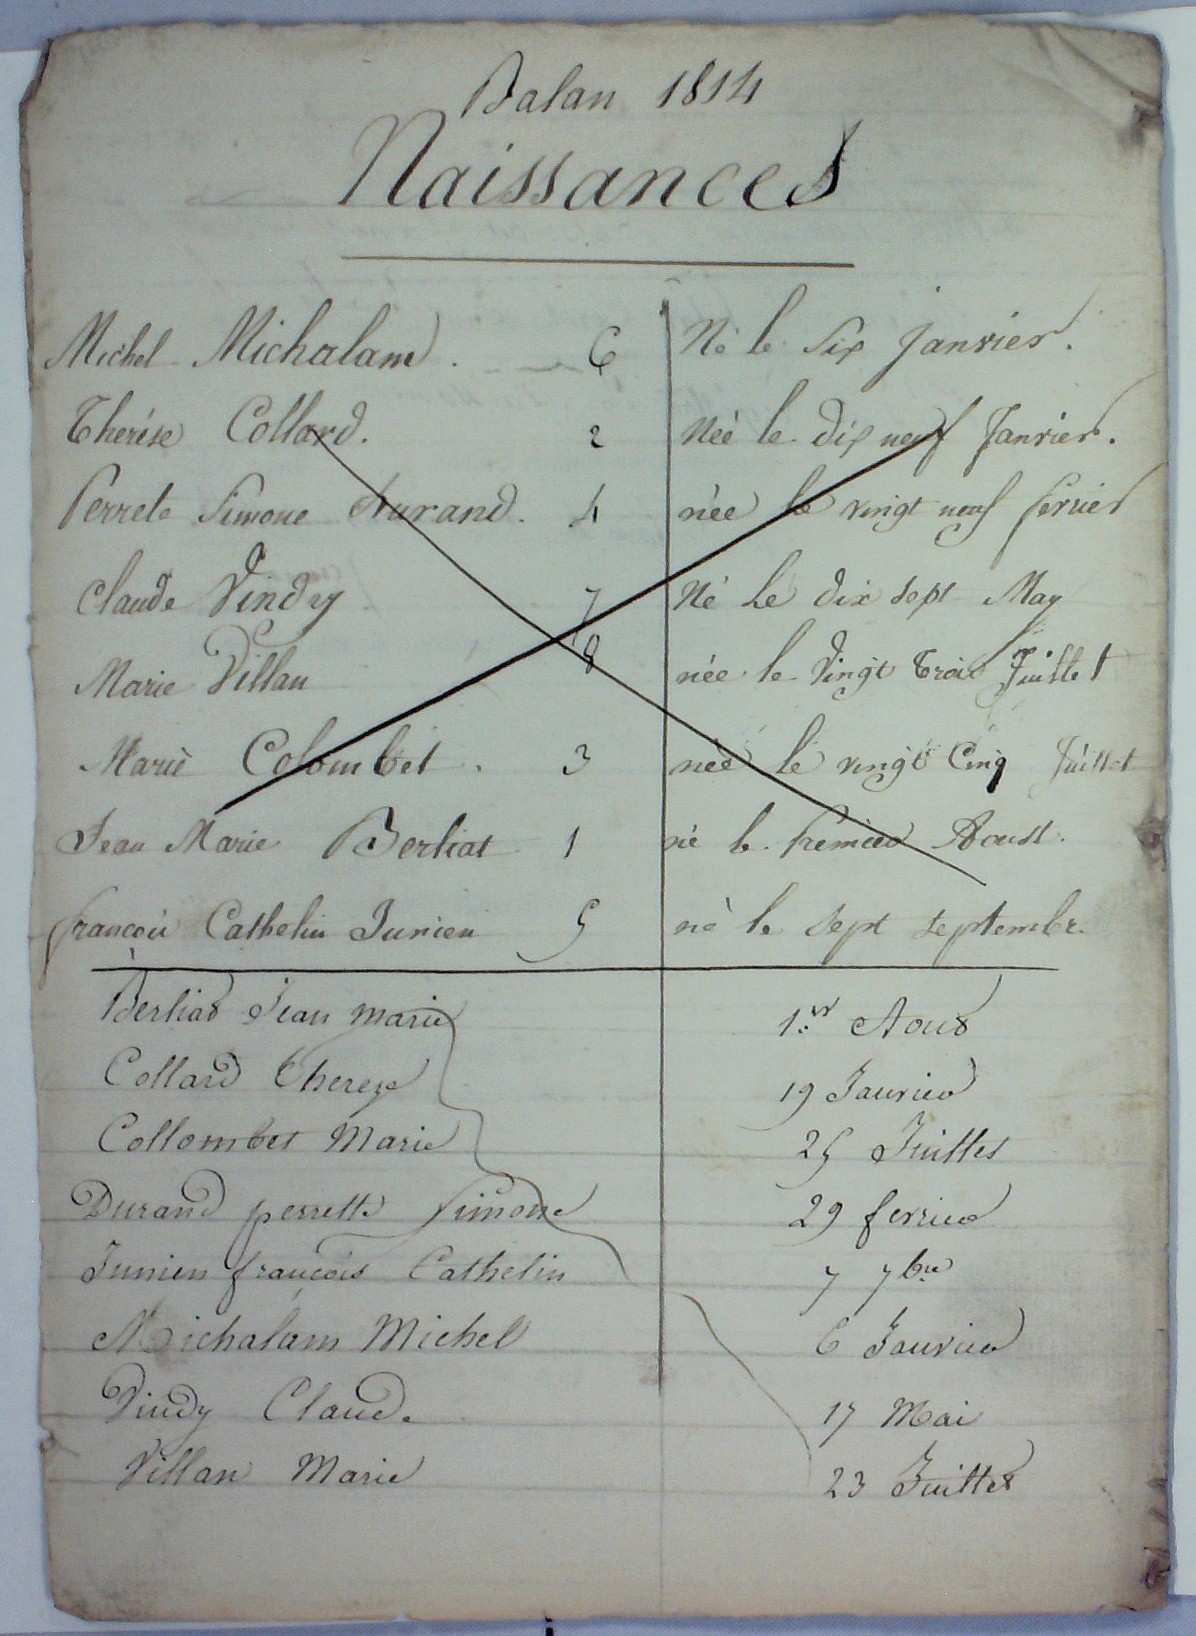 Balan 1814
Naissances
Michel Michalam. 6 Né le Six Janvier.
Therése Collard. 2 Néè le dix neuf Janvier.
Perrete Simone Durand. 4 née le vingt neuf fevrier
Claude Vindry 7 Né Le dix sept May
Marie Villan 8 née le Vingt trois Juillet
Mariè Colombet. 3 néè le vingt Cinq Juillet
Jean Marie Berliat 1 né le premier Aoust.
françois Cathelin Junien 5 né le Sept Septembre.
Berliat Jean marie 1.er Aout
Collard therese 19 Janvier
Collombet Marie 25 Juillet
Durand perrette Simone 29 fevrier
Junien françois Cathelin 7 7bre
Michalam Michel 6 Janvier
Vindy Claude 17 Mai
Villan Marie 23 Juillet